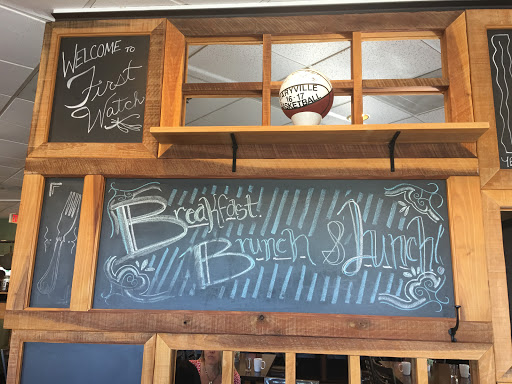 WELCOME TO
First
Watch
ARYVILLE
16-17
BASKETBALL
Breakfast.
Brunch & Lunch!